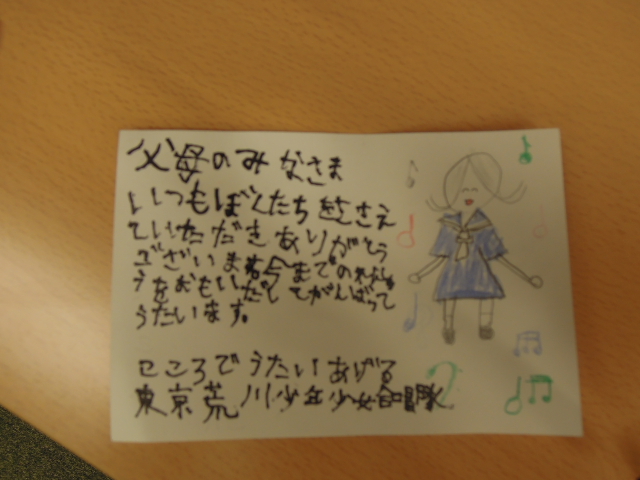 父母のみなさま
いつもぼくたちをささえ
ていただきありがとう
ございます今までのれんしゅ
うをおもいだしてがんばって
うたいます。
こころでうたいあげる
東京荒川少年少女合唱隊